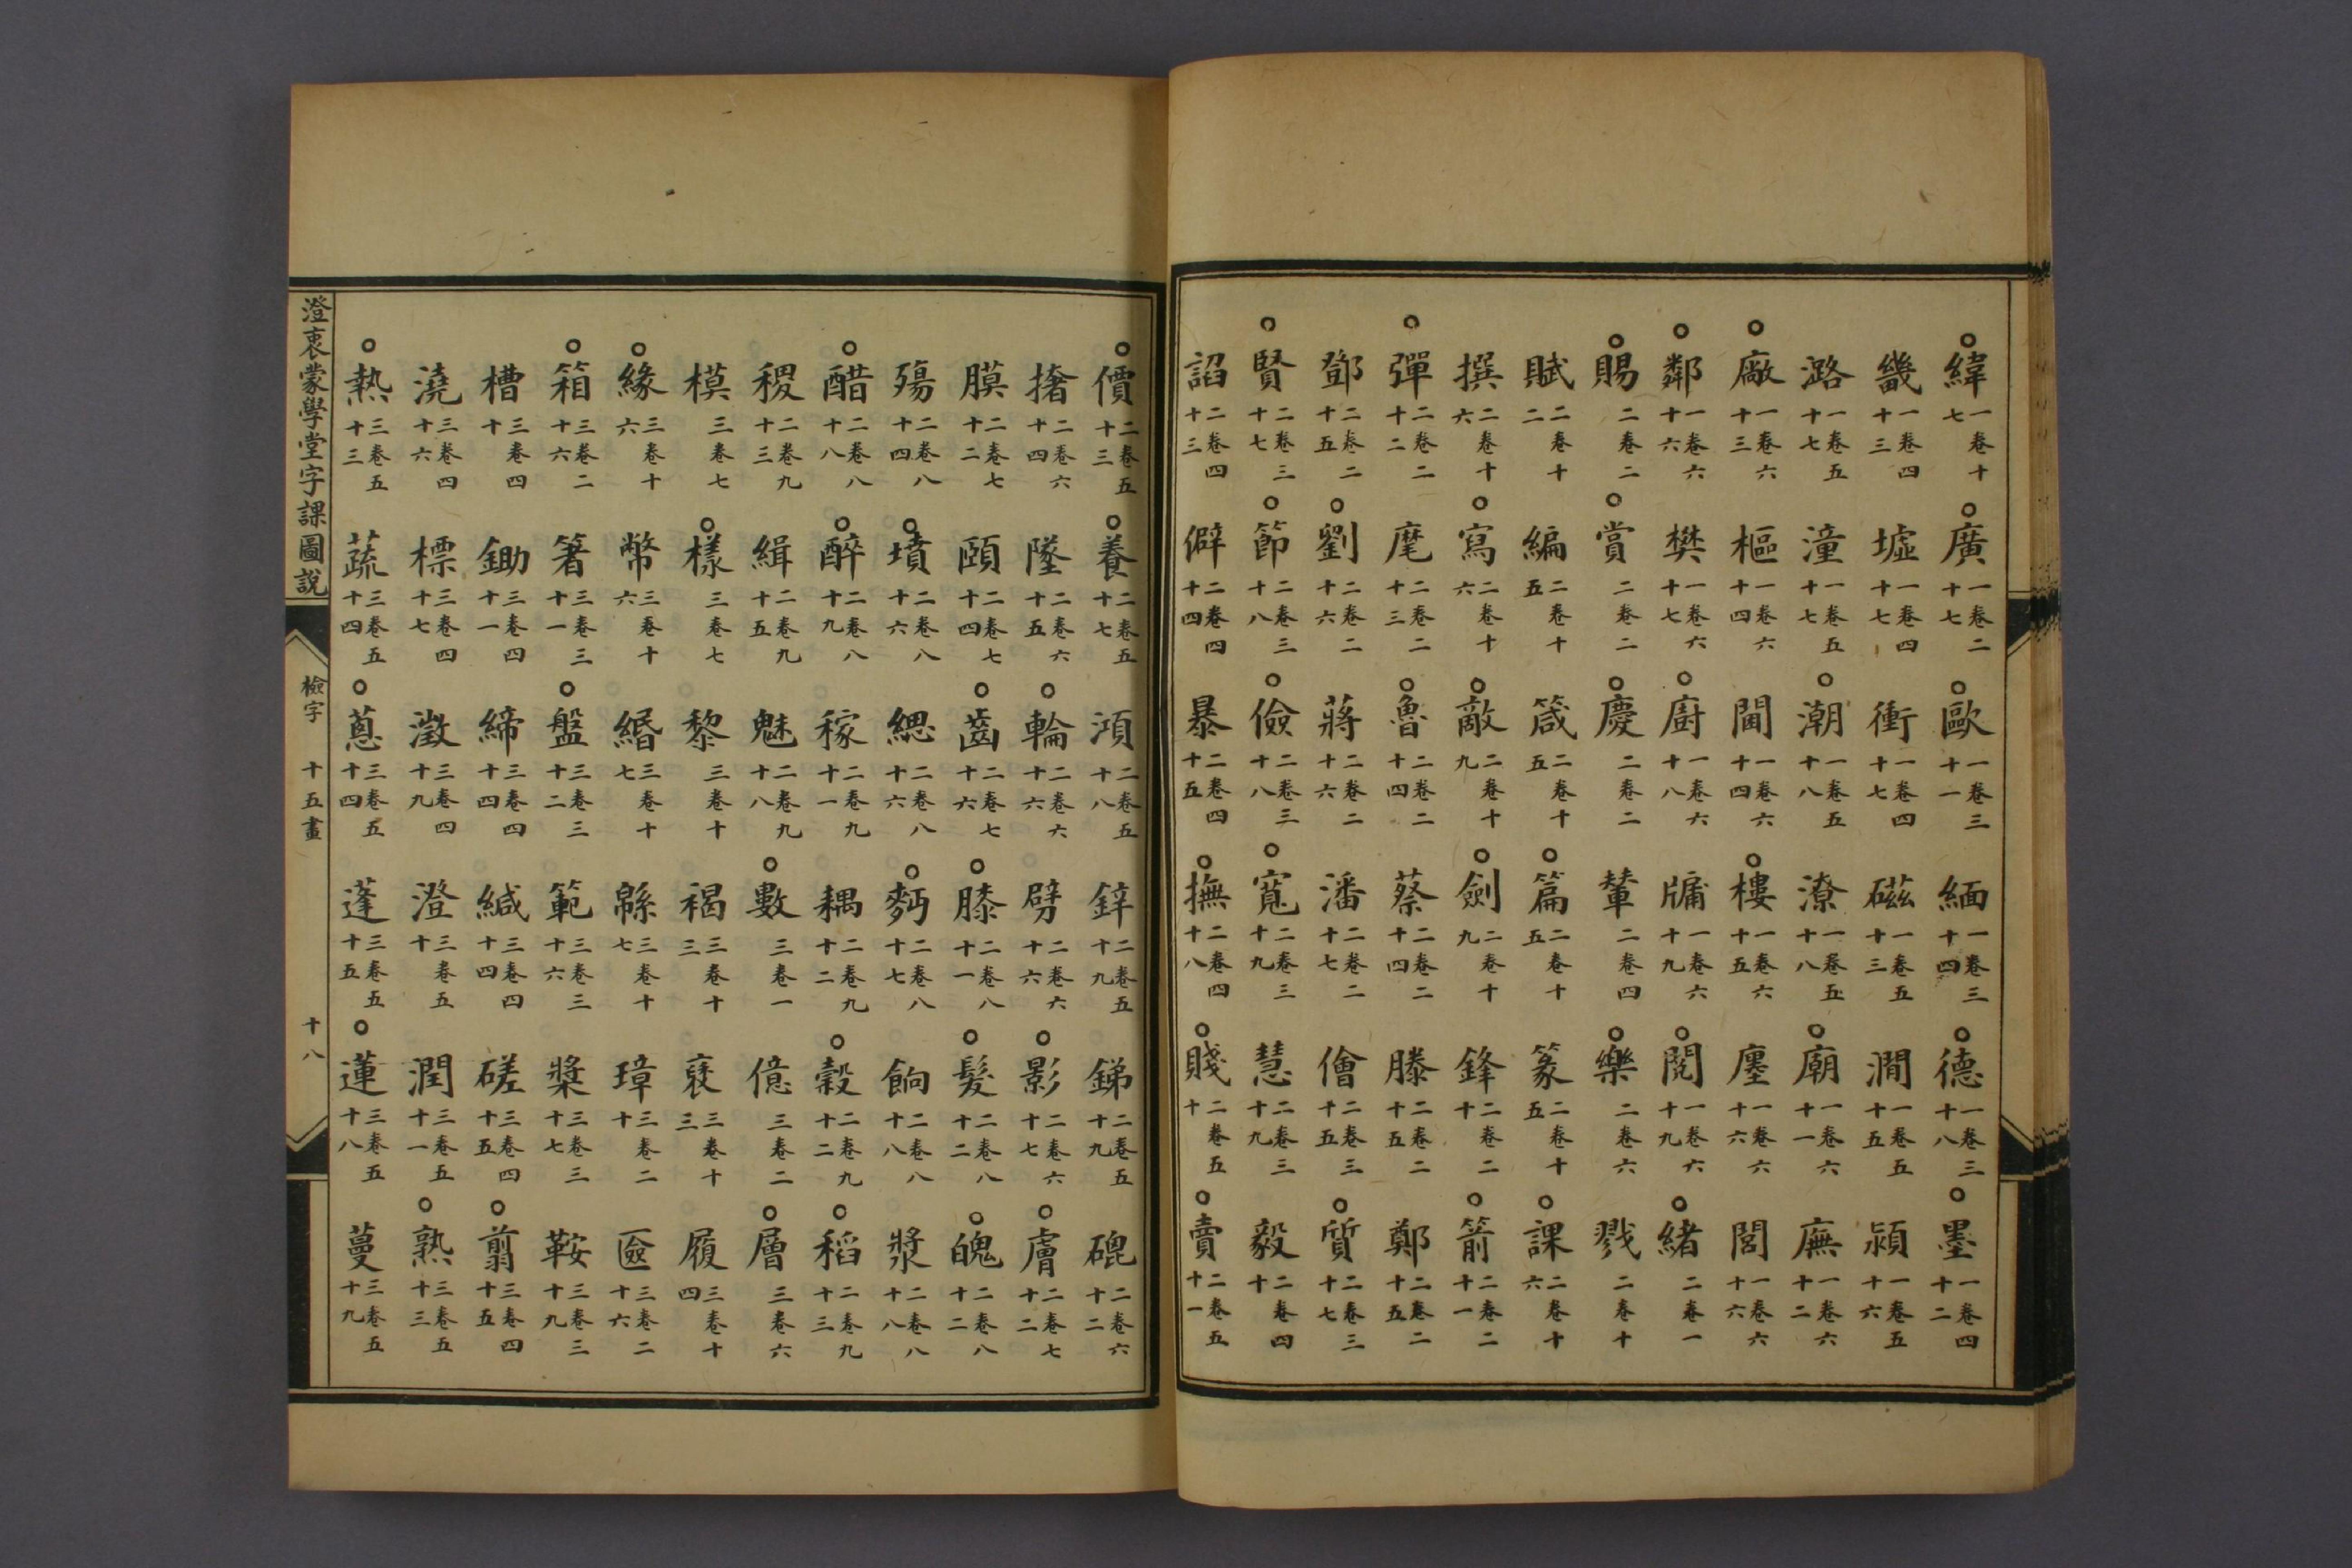 ○緯一卷十七 ○廣一卷二十七 ○歐一卷三十一 緬一卷三十四 ○德一卷三十八 ○墨一卷四十二
畿一卷四十三 墟一卷四十七 衝一卷四十七 磁一卷五十三 澗一卷五十五 潁一卷五十六
潞一卷五十七 潼一卷五十七 ○潮一卷五十八 潦一卷五十八 ○廟一卷六十一 廡一卷六十二
○廠一卷六十三 樞一卷六十四 閫一卷六十四 ○樓一卷六十五 廛一卷六十六 閭一卷六十六
○鄰一卷六十六 樊一卷六十七 ○廚一卷六十八 牖一卷六十九 ○閱一卷六十九 ○緒二卷一
○賜二卷二 ○賞二卷二 ○慶二卷二 輦二卷四 ○樂二卷六 戮二卷十
賦二卷十二 編二卷十五 箴二卷十五 ○篇二卷十五 篆二卷十五 ○課二卷十六
撰二卷十六 ○寫二卷十六 ○敵二卷十九 ○劍二卷十九 鋒二卷二十 ○箭二卷二十一
○彈二卷二十二 麾二卷二十三 ○魯二卷二十四 蔡二卷二十四 滕二卷二十五 鄭二卷二十五
鄧二卷二十五 ○劉二卷二十六 蔣二卷二十六 潘二卷二十七 儈二卷三十五 ○質二卷三十七
○賢二卷三十七 ○節二卷三十八 ○儉二卷三十八 ○寬二卷三十九 慧二卷三十九 毅二卷四十
諂二卷四十三 僻二卷四十四 暴二卷四十五 ○撫二卷四十八 ○賤二卷五十 ○賣二卷五十一
○價二卷五十三 ○養二卷五十七 澒二卷五十八 鋅二卷五十九 銻二卷五十九 磇二卷六十二
撦二卷六十四 墜二卷六十五 ○輪二卷六十六 劈二卷六十六 ○影二卷六十七 ○膚二卷七十二
膜二卷七十二 頤二卷七十四 ○齒二卷七十六 ○膝二卷八十一 ○髮二卷八十二 ○魄二卷八十二
殤二卷八十四 ○墳二卷八十六 緦二卷八十六 ○麪二卷八十七 餉二卷八十八 漿二卷八十八
○醋二卷八十八 ○醉二卷八十九 稼二卷九十一 耦二卷九十二 ○穀二卷九十二 ○稻二卷九十三
稷二卷九十三 緝二卷九十五 魅二卷九十八 ○數三卷一 億三卷二 ○層三卷六
模三卷七 ○樣三卷七 黎三卷十 褐三卷十三 褎三卷十三 履三卷十四
○緣三卷十六 幣三卷十六 緡三卷十七 緜三卷十七 璋三卷二十 匳三卷二十六
○箱三卷二十六 箸三卷三十一 ○盤三卷三十二 範三卷三十六 槳三卷三十七 鞍三卷三十九
槽三卷四十 鋤三卷四十一 締三卷四十四 緘三卷四十四 磋三卷四十五 ○翦三卷四十五
澆三卷四十六 標三卷四十七 澂三卷四十九 澄三卷五十 潤三卷五十一 ○熟三卷五十三
○熱三卷五十三 蔬三卷五十四 ○蔥三卷五十四 蓬三卷五十五 ○蓮三卷五十八 蔓三卷五十九
澄衷蒙學堂字課圖說
檢字 十五畫
十八